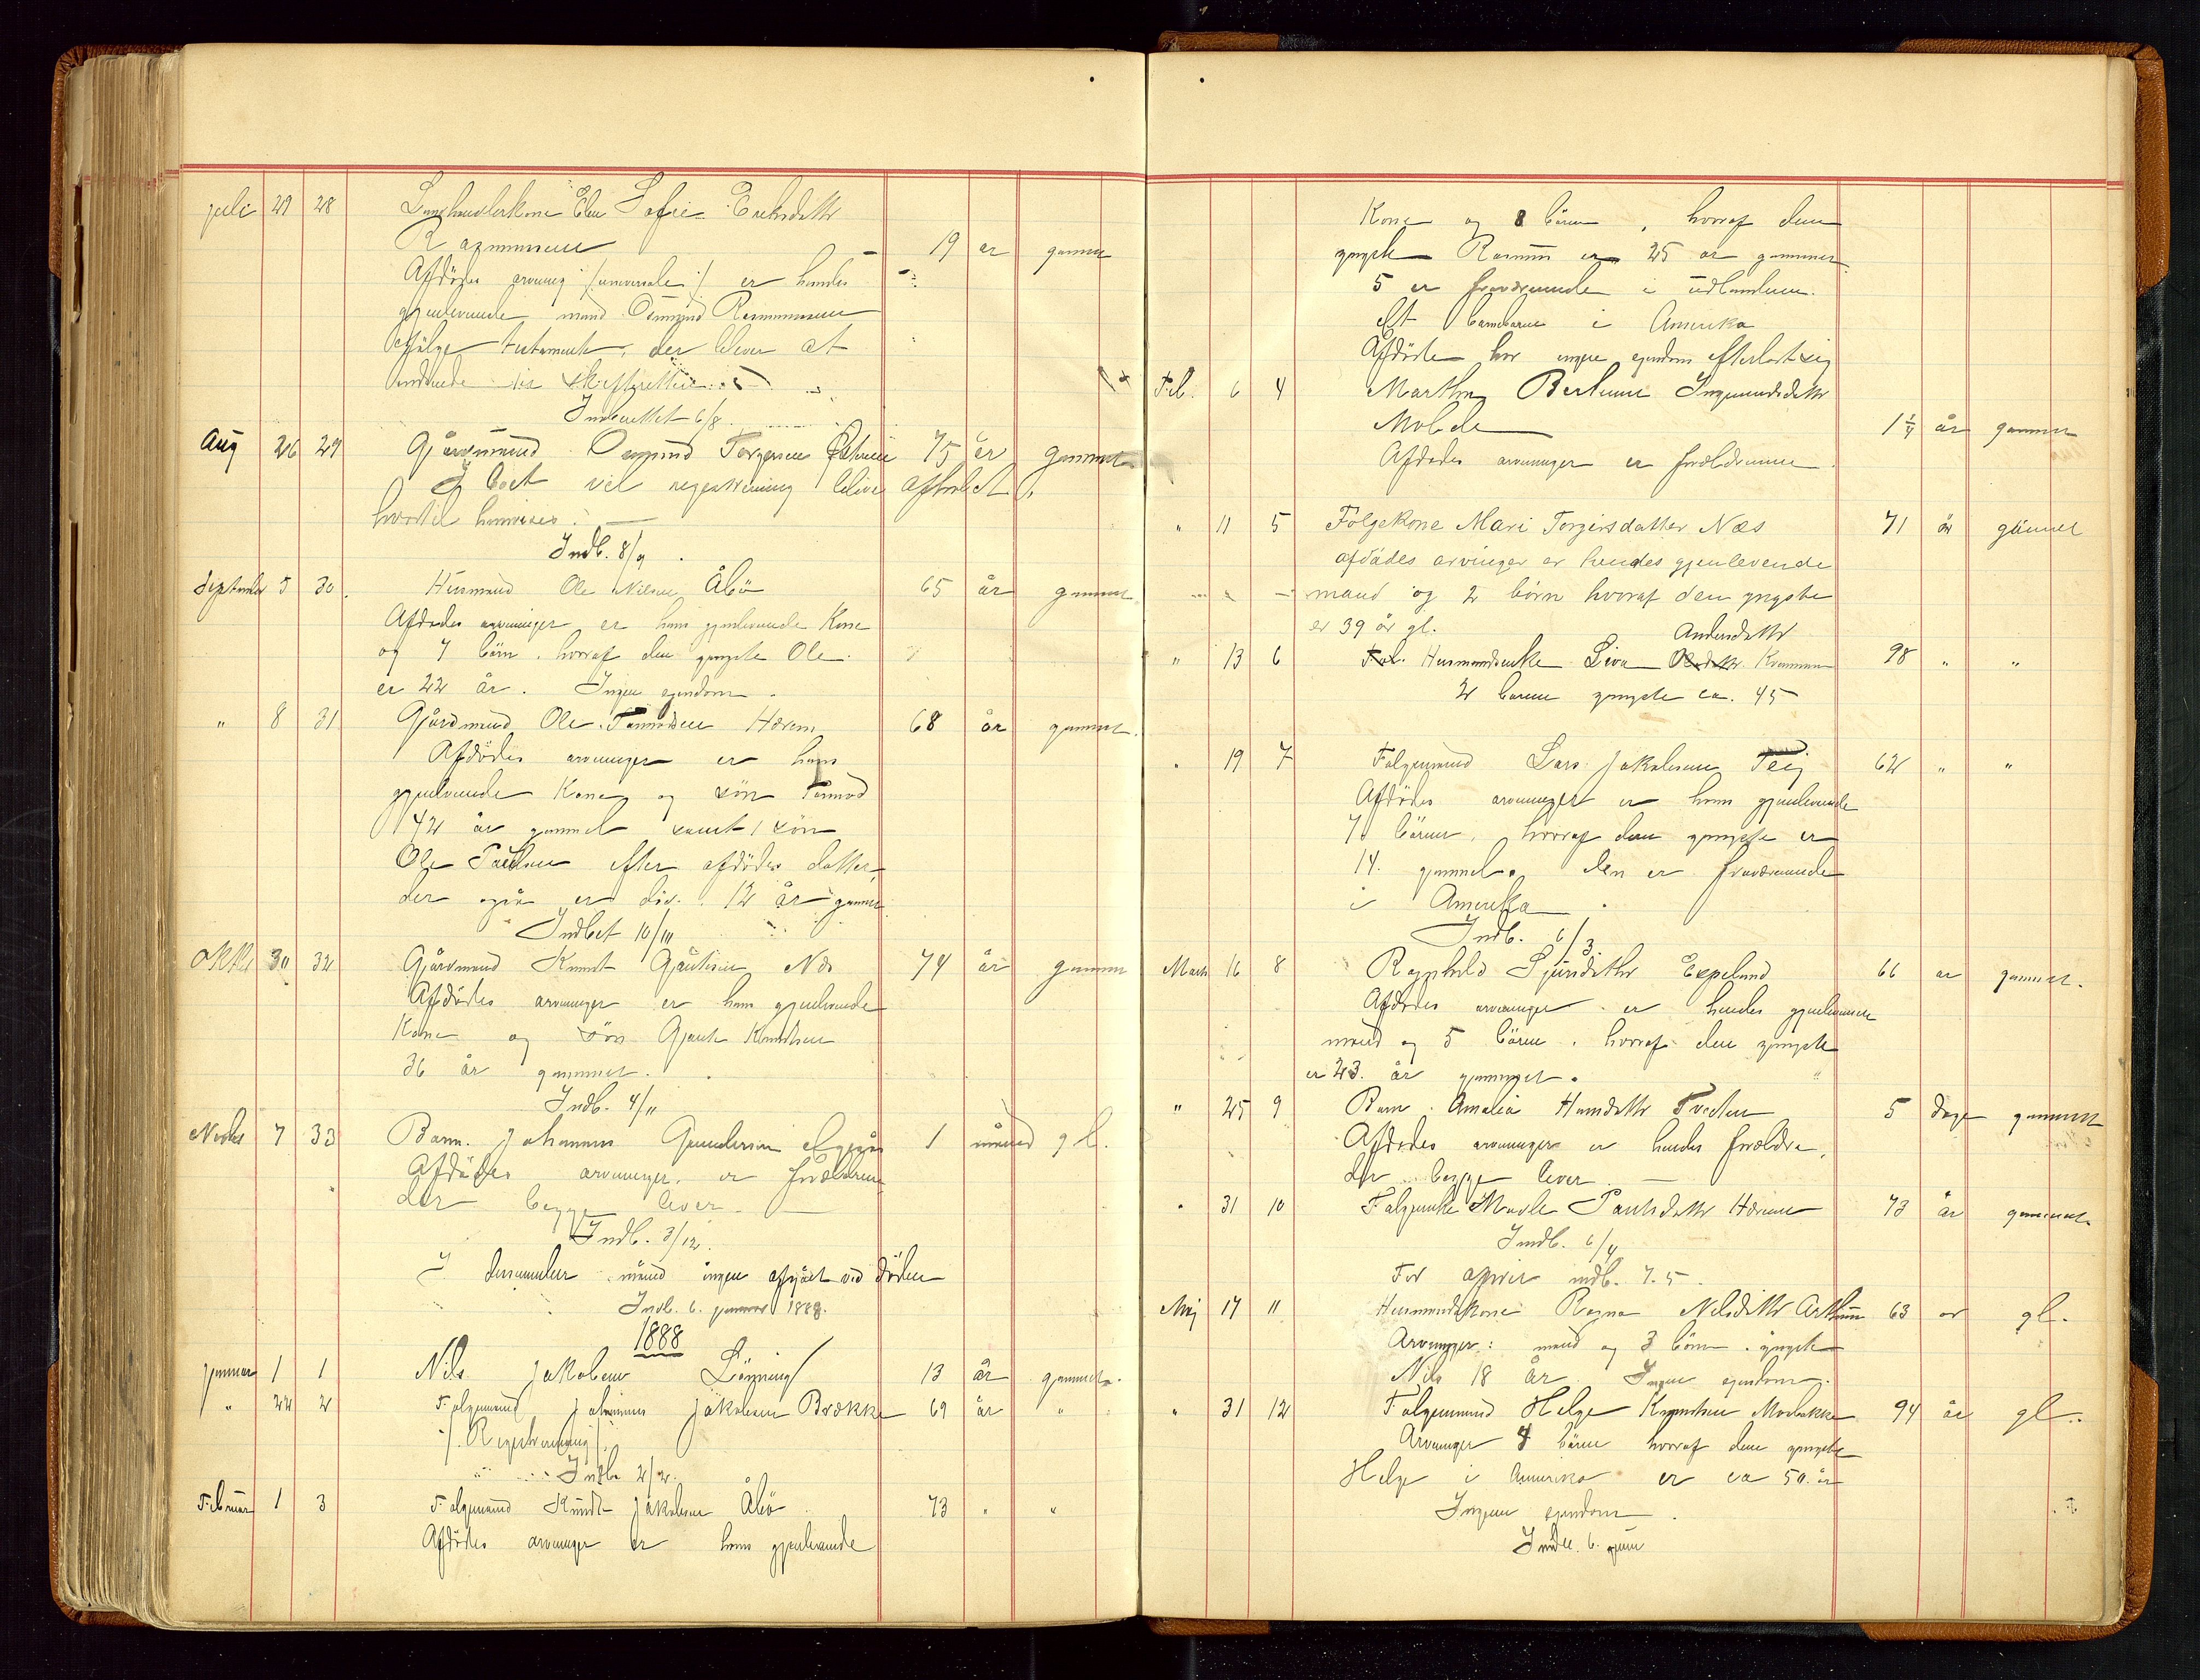 juli 29 28 Elen Sofie
Rasmussen 19 år gammel
Afdødes arving (universale) er hendes
gjenlevende mand Osmund Rasmussen
ifølge testament, der bliver at
skifteretten.
Indberettet 6/8
Aug 26 29 Gårdmand Osmund Torgersen 75 år gammel
I boet vil registrering blive afholdt,
hvortil henvises.
Indb. 8/9.
September 5 30. Husmand Ole Nilsen Åbø 65 år gammel.
Afdødes arvinger er hans gjenlevende Kone
og 7 børn, hvoraf den yngste Ole
er 22 år. Ingen ejendom.
" 8 31 Gårdmand Ole Tormodsen Hærem 68 år gammel.
Afdødes arvinger er hans
gjenlevende Kone og søn Tormod
42 år gammel samt 1 søn
Ole efter afdødes datter,
der også er 12 år gammel
Indbet 10/
30 32 Gårdmand Knut Gautesen Næs 74 år gammel
Afdødes arvinger er hans gjenlevende
Kone og søn Gaute Knudsen
36 år gammel.
Indb. 4/11
Novbr 7 33 Barn. Johannes Gundersen 1 måned gl.
Afdødes arvinger er forældrene
der begge lever.
Indb. 3/12.
I december måned ingen afgået ved døden
Indb. 6. januar 1888.
1888
Januar 1 1 Nils Jakobsen Løyning 13 år gammel.
" 22 2 Følgemand Johannes Jakobsen Brække 69 år "
/. Registrering /.
Indb. 2/2.
Februar 1 3 Følgemand Knudt Jakobsen Åbø 73 " "
Afdødes arvinger er hans gjenlevende
Kone og 8 børn, hvoraf den
yngste Rasmus er 25 år gammel.
5 er fraværende i udlandene.
Et barnebarn i Amerika
Afdøde har ingen ejendom efterladt sig
Feb. 6 4 Martha Bertine Ingmundsdatter
Molde 1 1/4 år gammel
Afdødes arvinger er forældrene.
" 11 5 Følgekone Mari Torgersdatter Næs 71 år gammel
afdødes arvinger er hendes gjenlevende
mand og 2 børn hvoraf den yngste
er 39 år gl.
Andersdatter
" 13 6 Husmandsenke Siva 98 " "
2 børn yngste ca. 45
" 19 7 Følgemand Lars Jakobsen Teig 62 " "
Afdødes arvinger er hans gjenlevende
7 børn, hvoraf den yngste er
14. gammel. den er fraværende
i Amerika.
Indb. 6/3.
Marts 16 8 Ragnhild Sjursdatter Espeland 66 år gammel.
Afdødes arvinger er hendes gjenlevende
mand og 5 børn, hvoraf den yngste
er 23. år gammel.
" 25 9 Barn Amalia Hansdatter Tveten 5 dage gammel
Afdødes arvinger er hendes forældre,
der begge lever.
" 31 10 Følgeenke Paulsdatter Hærem 73 år gammel
Indb. 6/4
For april indb. 7.5.
Maj 17 11 Husmandskone Ragna Nilsdatter Arthun 63 år gl.
Arvinger: mand og 3 børn. yngste
Nils 18 år. Ingen ejendom.
" 31 12 Følgemand Helge Knudsen 94 år gl.
Arvinger børn hvoraf den yngste
Helge i Amerika er ca 50 år
Ingen ejendom.
Indb. 6. juni